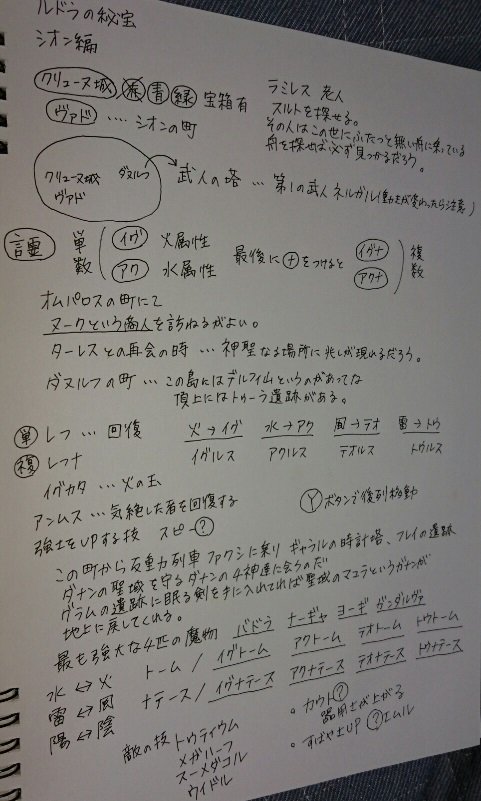 ルドラの秘宝
シオン編
クリューヌ城 赤 青 緑 宝箱有
ヴァド …. シオンの町
ラミレス 老人
スルトを探せる。
その人はこの世にふたつと無い舟に乗っている
舟を探せば必ず見つかるだろう。
クリューヌ城 ダヌルフ
ヴァド
武人の塔 … 第1の武人 ネルガル(動きが変わったら注意)
言霊 単数 イグ 火属性
アク 水属性
最後に ナ をつけると イグナ 複数
アクナ
オムパロスの町にて
ヌークという商人を訪ねるがよい。
ターレスとの再会の時 … 神聖なる場所に兆しが現れるだろう。
ダヌルフの町 … この島にはデルフィムというのがあってな
頂上にはトゥーラ遺跡がある。
単 レフ … 回復
複 レフナ
火→イグ 水→アク 風→テオ 雷→トゥ
イグルス アクルス テオルス トゥルス
イグカタ … 火の玉
アンムス … 気絶した者を回復する
Yボタンで後列移動
強士をUPする技 スピー?
この町から反重力列車 ファクシに乗り ギャラルの時計塔、フレイの遺跡
ダナンの聖域を守るダナンの4神達に会うのだ
グラムの遺跡に眠る剣を手に入れてれば聖域のマユラというガナンが
地上に戻してくれる。
最も強大な4匹の魔物 バドラ ナーギャ ヨーギ ガンダルヴァ
水↔火 トーム / イグトーム アクトーム テオトーム トゥトーム
雷↔風 ナテース / イグナテース アクナテース テオナテース トゥナテース
陽↔陰
敵の技 トゥティウム
メガハーフ
スーメダコル
ウィドル
・カウト?
器用士が上がる
・すばや士UP ?エムル